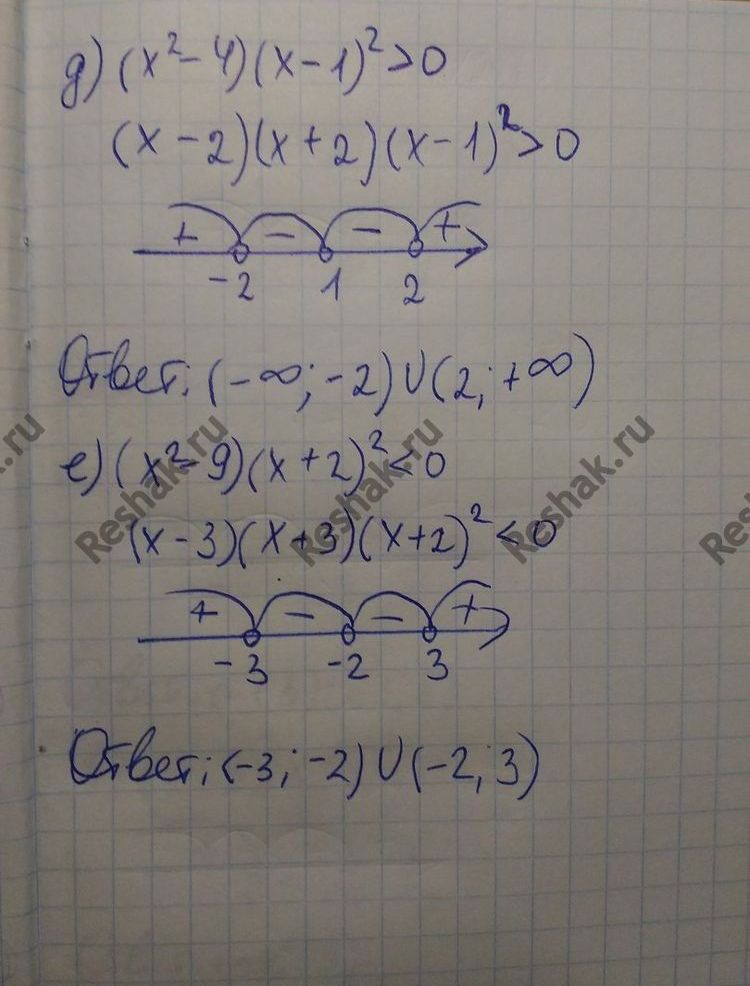 д) (x²-4)(x-1)²>0
(x-2)(x+2)(x-1)²>0
+ - - +
-2 1 2
Ответ: (-∞; -2)∪(2; +∞)
е) (x²-9)(x+2)²<0
(x-3)(x+3)(x+2)²<0
+ - - +
-3 -2 3
Ответ: (-3; -2)∪(-2; 3)
Reshak.ru Reshak.ru Reshak.ru